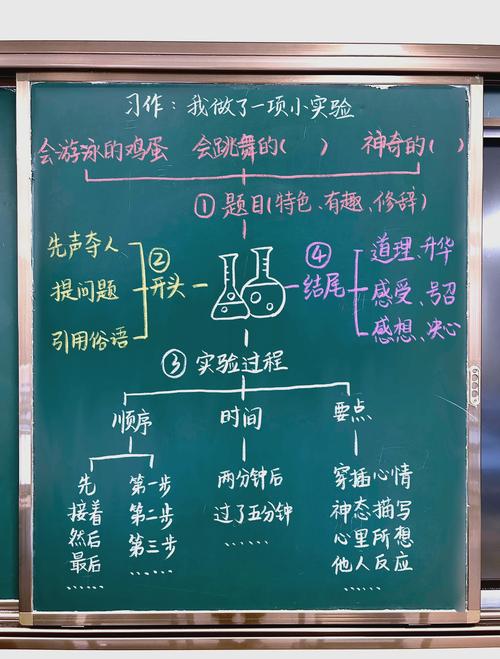 习作：我做了一项小实验
会游泳的鸡蛋 会跳舞的( ) 神奇的( )
①题目(特色、有趣、修辞)
先声夺人
提问题
引用俗语
②开头
④结尾
道理、升华
感受、号召
感想、决心
③实验过程
顺序 时间 要点
先
接着
然后
最后
……
第一步
第二步
第三步
……
两分钟后
过了五分钟
……
穿插心情
神态描写
心里所想
他人反应
……